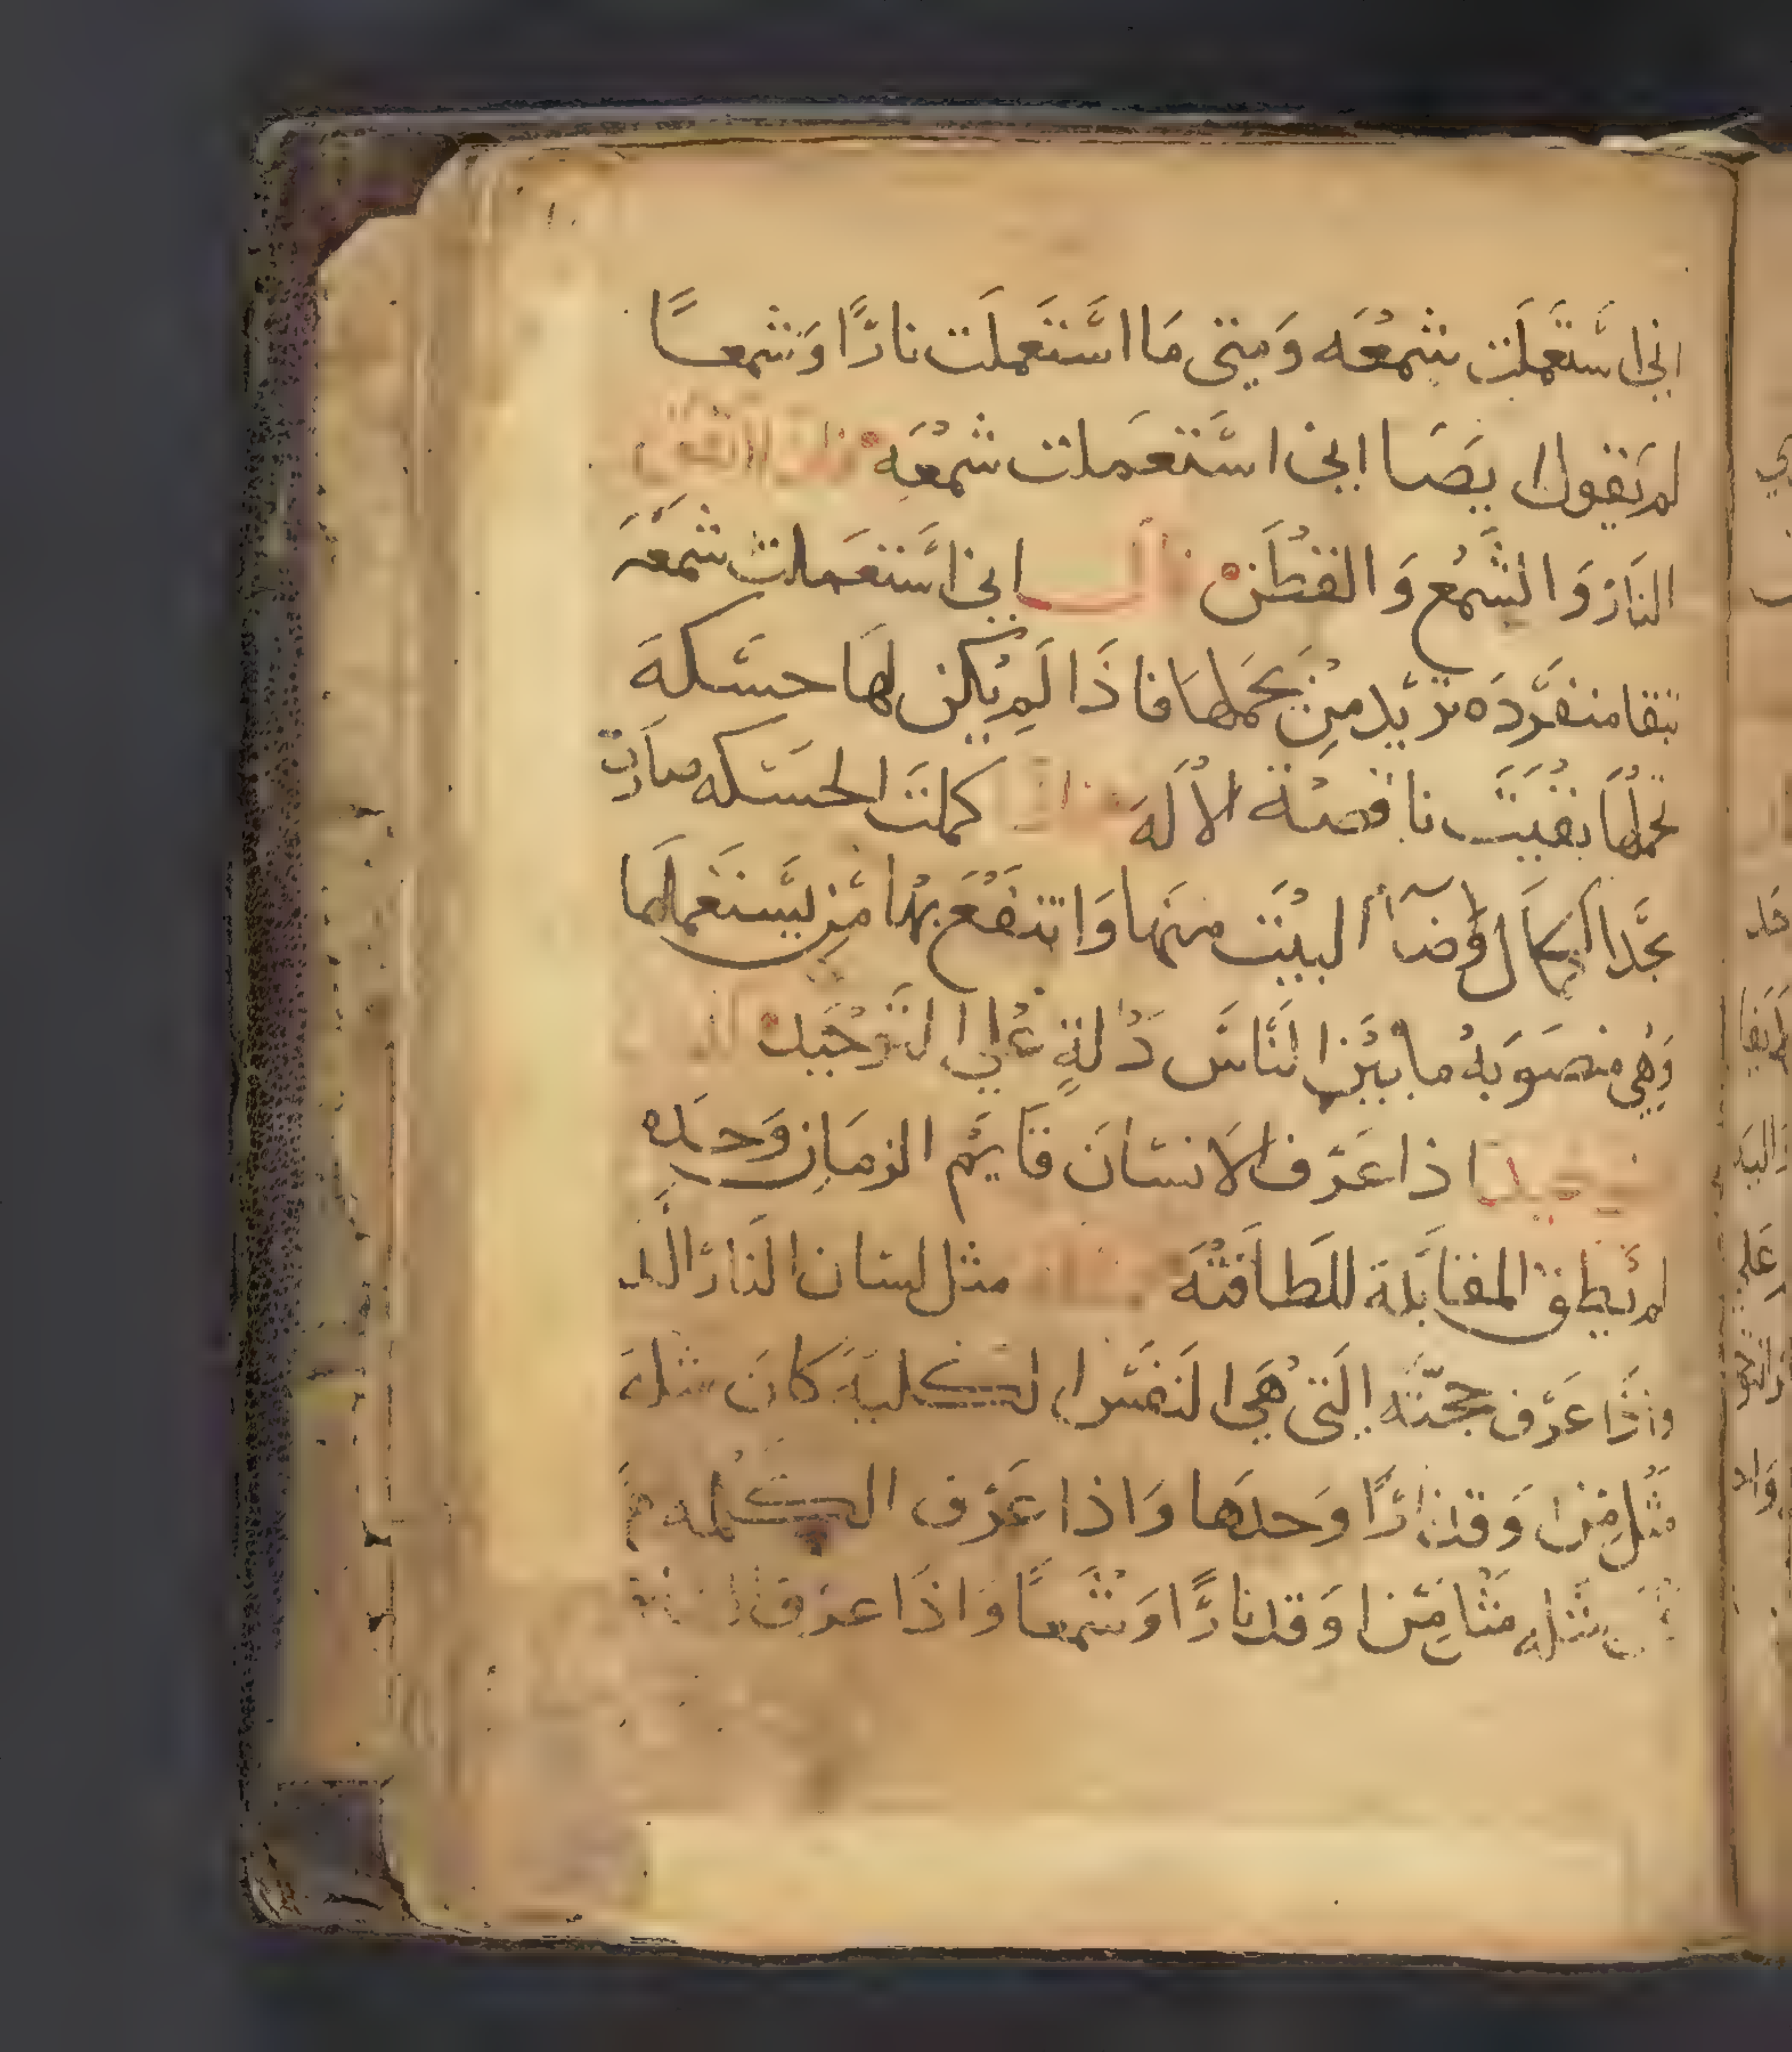 اني استعملت شمعه ومتى ما استعملت نارًا وشمعًا
لم تقول ايضا اني استعملت شمعه
النار والشمع والقطن اني استعملت شمعه
تبقا منفرده تريد من يحملها فاذا لم يكن لها حسكه
تحملها بقيت ناقصة الاله كملت الحسكه صارت
بحد الكمال وضآ البيت منها وانتفع بها من يستعملها
وهي منصوبه ما بين الناس دالة على التوحيد
اذا عرف الانسان قايم الزمان وحده
لم يطق المقابلة للطافته مثل لسان النار الذ
واذا عرف حجته التي هي النفس الكلية كان مثله
مثل من اوقد نارًا وحدها واذا عرف الكلمه
مثله مثل من اوقد نارًا وشمعًا واذا عرف